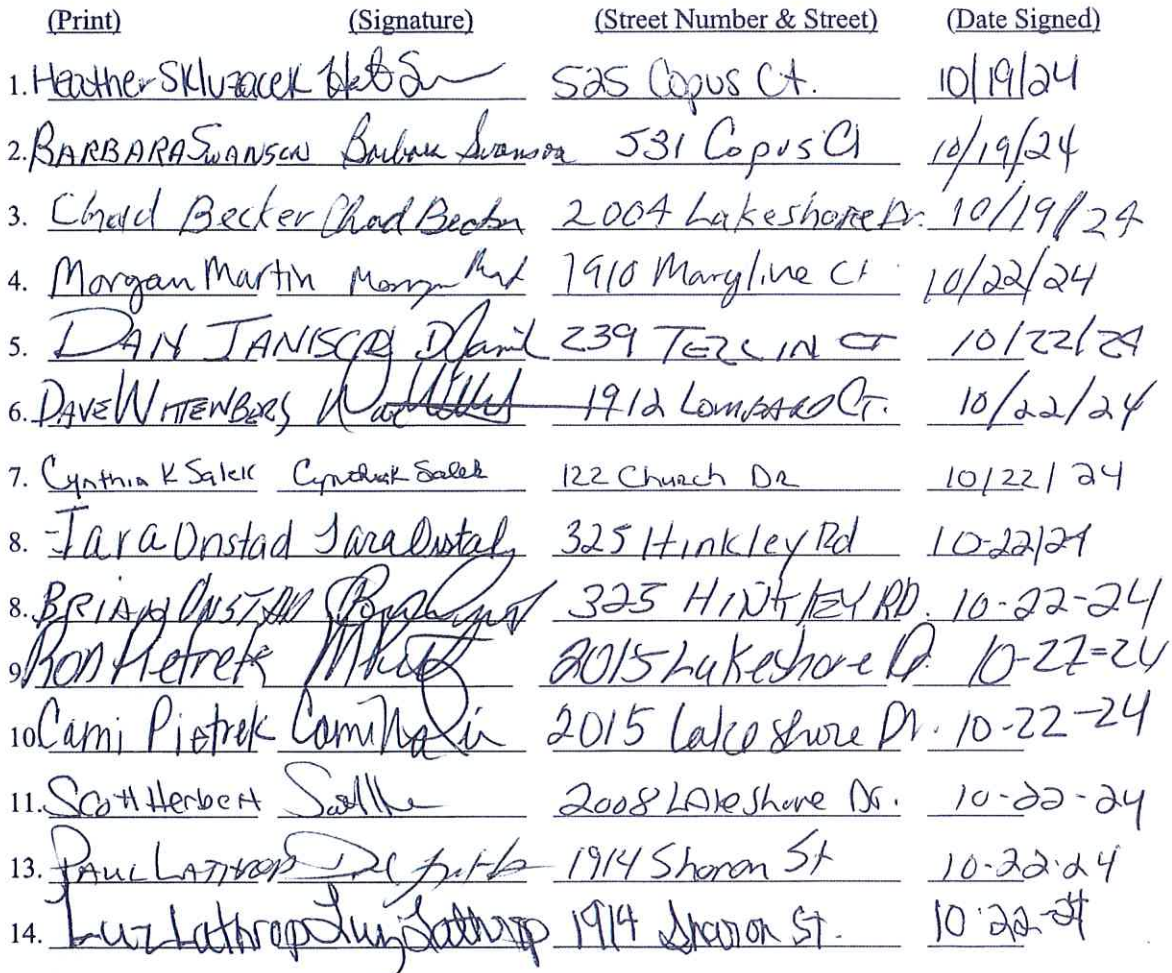 (Print) (Signature) (Street Number & Street) (Date Signed)
1. Heather Skluzacek 525 Copus Ct. 10/19/24
2. BARBARA SWANSON Barbara Swanson 531 Copus Ct 10/19/24
3. Chad Becker Chad Becker 2004 Lakeshore Dr. 10/19/24
4. Morgan Martin 1910 Maryline Ct 10/22/24
5. DAN 239 CT 10/22/24
6. DAVE WITTENBERG 1912 LOMBARD CT. 10/22/24
7. Cynthia K Salek Cynthia K Salek 122 Church DR 10/22/24
8. Tara Onstad Tara Onstad 325 Hinkley Rd 10-22/24
8. BRIAN ONSTAD 325 HINKLEY RD. 10-22-24
9. Ron Pietrek 2015 Lakeshore D 10-22-24
10. Cami Pietrek Cami 2015 Lake Shore Dr. 10-22-24
11. Scott Herbert 2008 Lakeshore Dr. 10-22-24
13. PAUL LATHROP 1914 Sharon St 10-22-24
14. Luz Lathrop Luz Lathrop 1914 Sharon St. 10-22-24